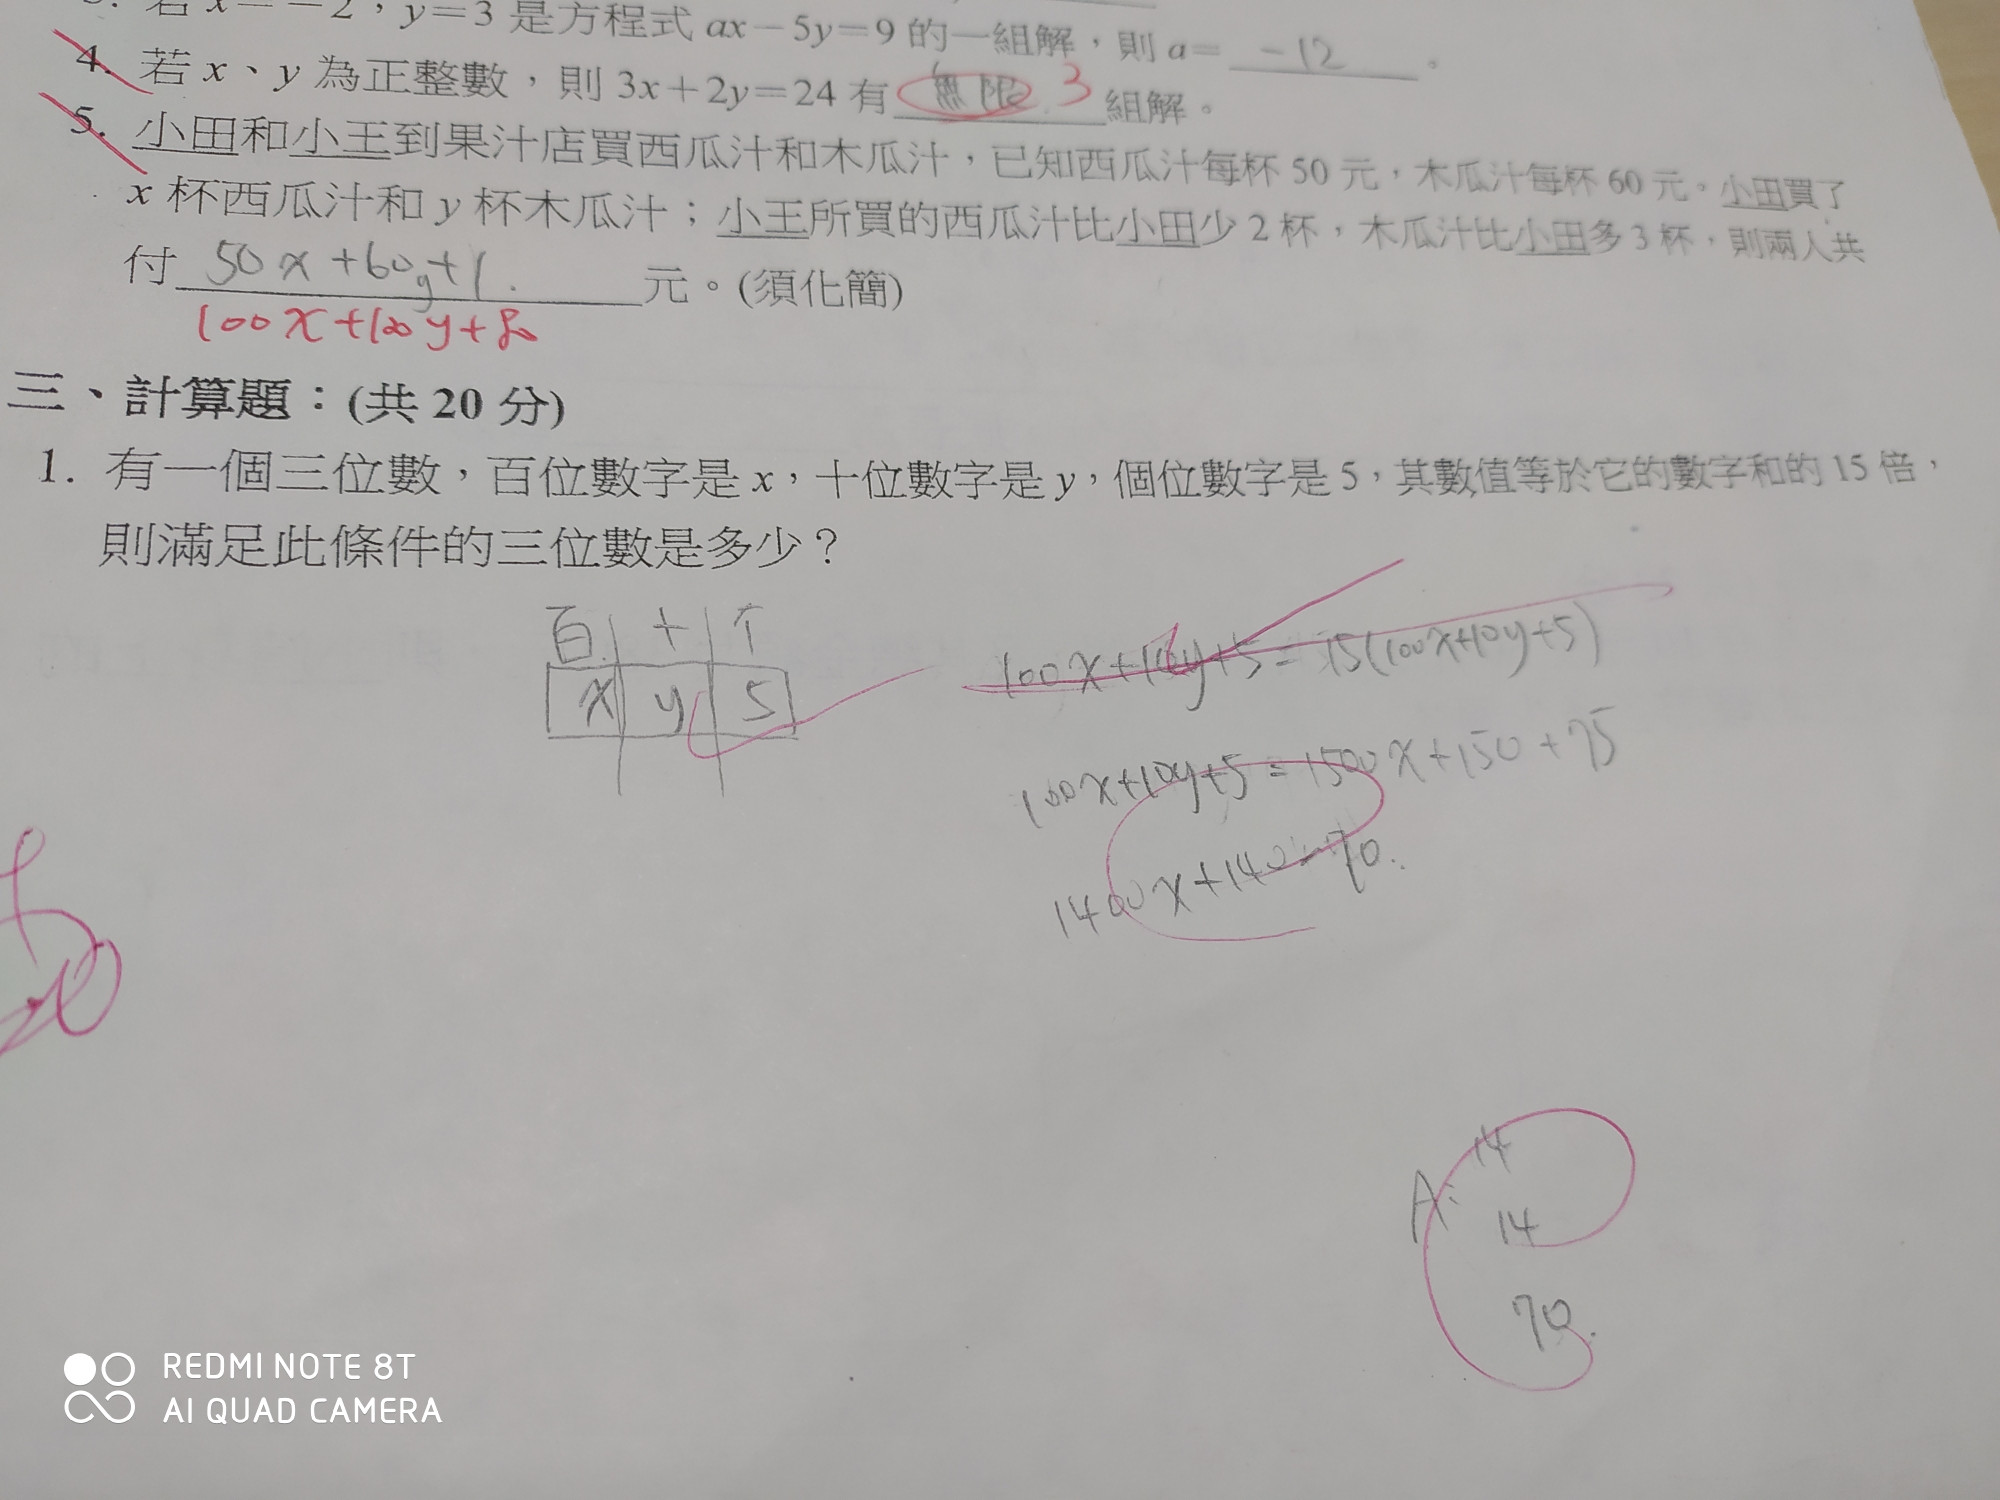 若 x=-2，y=3 是方程式 ax-5y=9 的一組解，則 a= -12 。
4. 若 x、y 為正整數，則 3x+2y=24 有 無限 3 組解。
5. 小田和小王到果汁店買西瓜汁和木瓜汁，已知西瓜汁每杯 50 元，木瓜汁每杯 60 元。小田買了
x 杯西瓜汁和 y 杯木瓜汁；小王所買的西瓜汁比小田少 2 杯，木瓜汁比小田多 3 杯，則兩人共
付 50x+60y+1 元。(須化簡)
100x+120y+80
三、計算題：(共 20 分)
1. 有一個三位數，百位數字是 x，十位數字是 y，個位數字是 5，其數值等於它的數字和的 15 倍，
則滿足此條件的三位數是多少？
百 十 个
x y 5
100x+10y+5=15(100x+10y+5)
100x+10y+5=1500x+150+75
1400x+140=70
A: 14
14
70
REDMI NOTE 8T
AI QUAD CAMERA